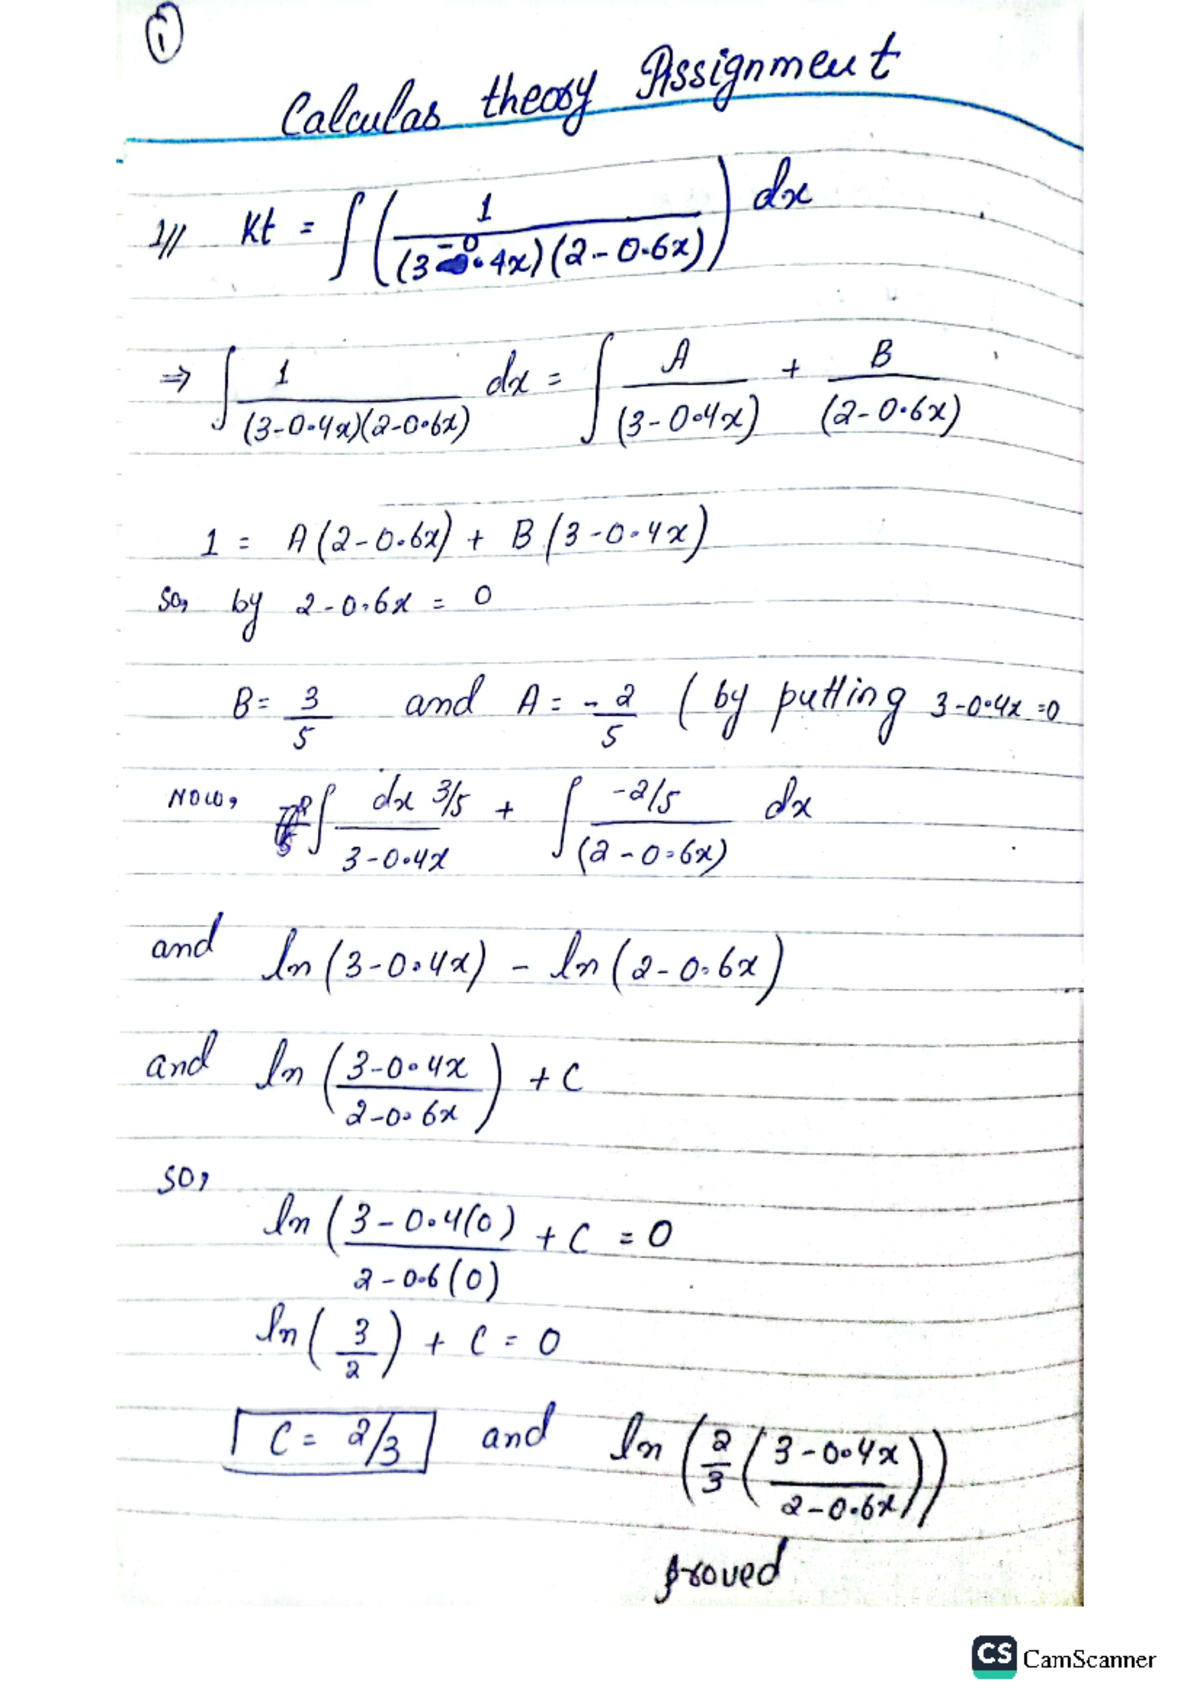 1
Calculas theory Assignment
1// Kt = ∫ ( 1 / (3-0.4x)(2-0.6x) ) dx
⇒ ∫ 1 / (3-0.4x)(2-0.6x) dx = ∫ A / (3-0.4x) + B / (2-0.6x)
1 = A(2-0.6x) + B(3-0.4x)
so, by 2-0.6x = 0
B = 3/5 and A = -2/5 ( by putting 3-0.4x =0
Now, ∫ dx 3/5 / 3-0.4x + ∫ -2/5 / (2-0.6x) dx
and ln(3-0.4x) - ln(2-0.6x)
and ln ( 3-0.4x / 2-0.6x ) + C
so,
ln ( 3-0.4(0) / 2-0.6(0) + C = 0
ln ( 3/2 ) + C = 0
C = 2/3 and ln ( 2/3 ( 3-0.4x / 2-0.6x ) )
proved
CS CamScanner